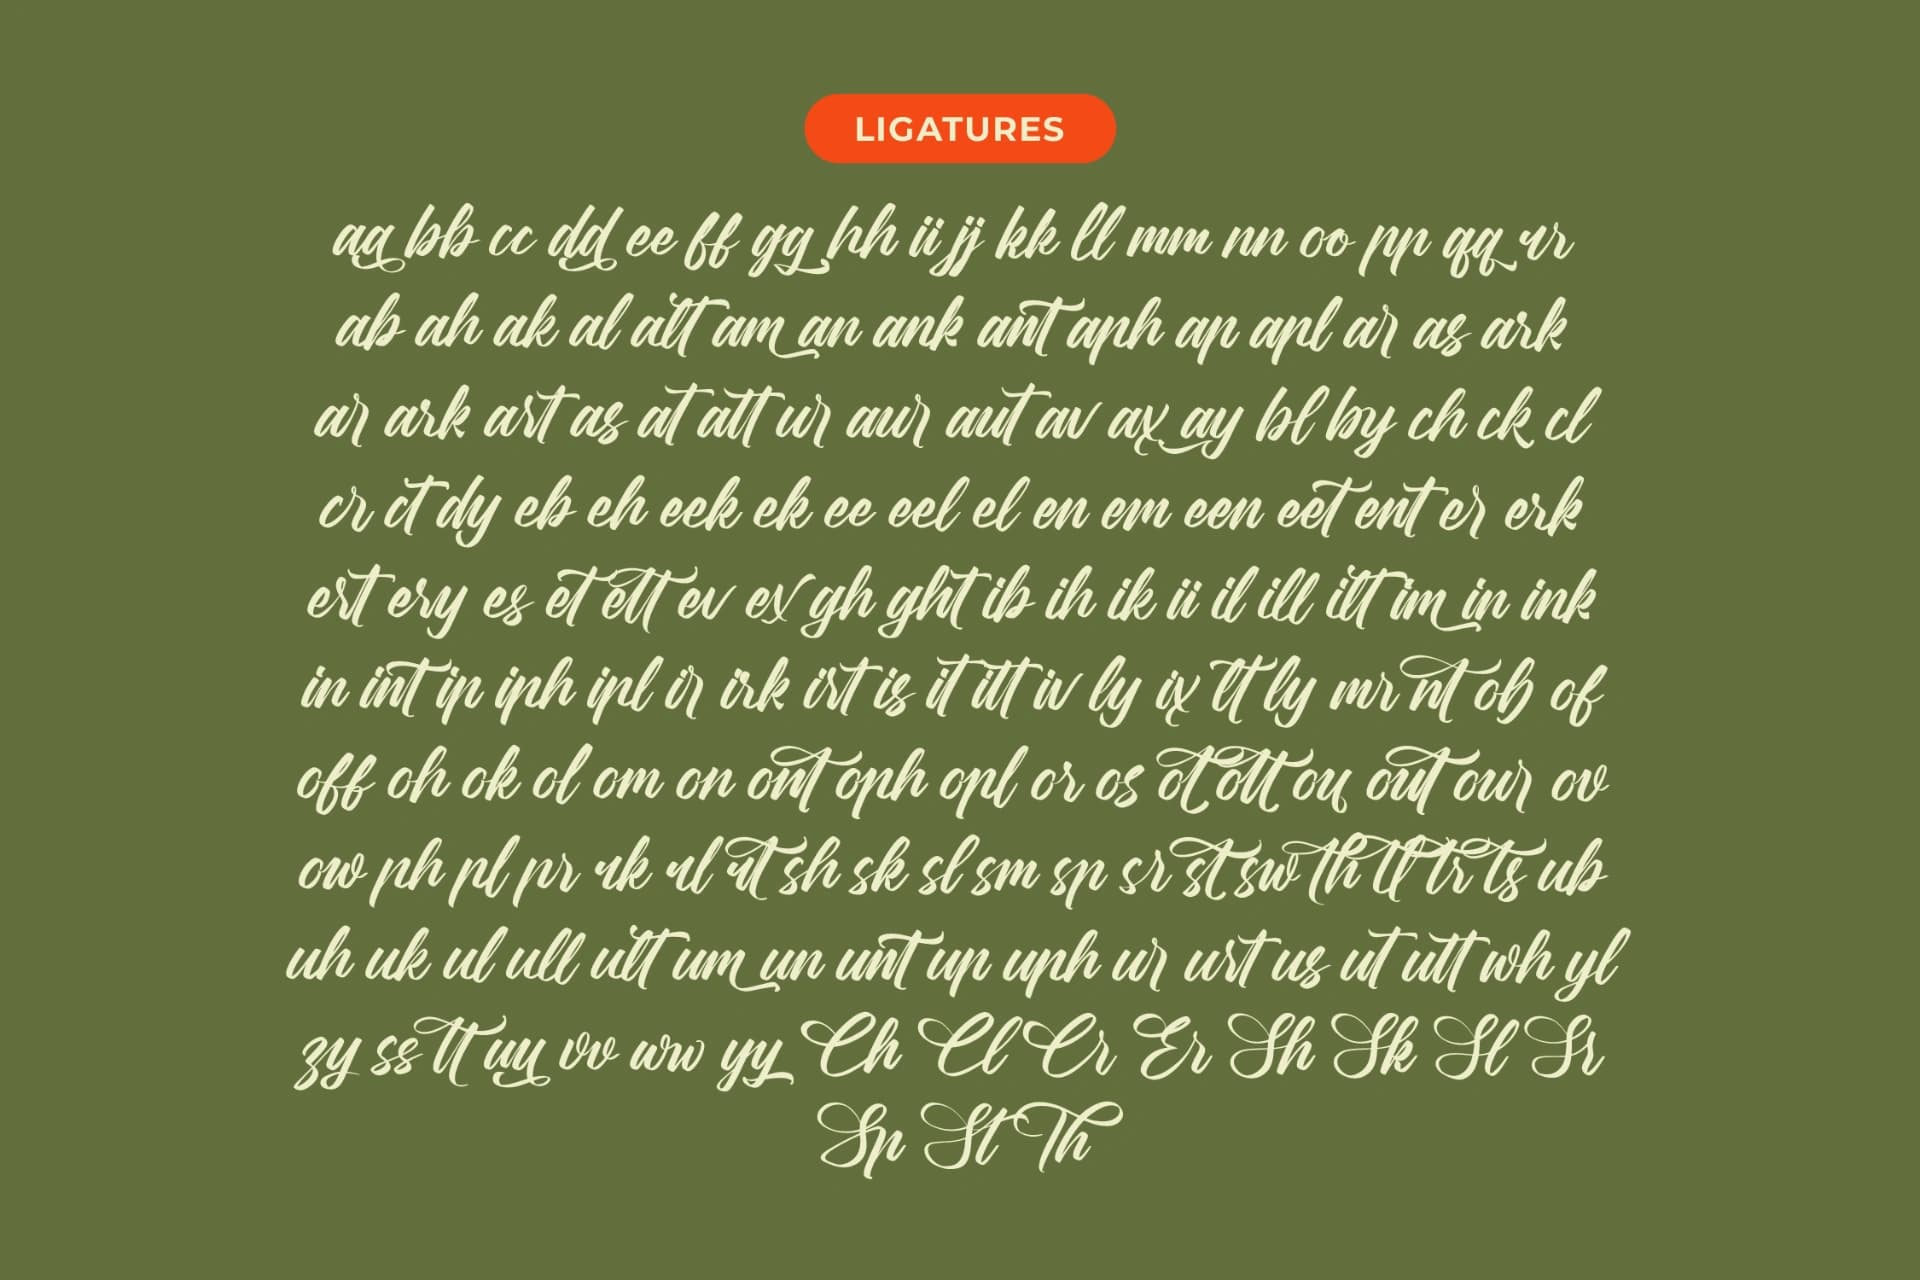 LIGATURES
aa bb cc dd ee ff gg hh ii jj kk ll mm nn oo pp qq rr
ab ah ak al alt am an ank ant aph ap apl ar as ark
ar ark art as at att ur aur aut av ax ay bl by ch ck cl
cr ct dy eb eh eek ek ee eel el en em een eet ent er erk
ert ery es et ett ev ex gh ght ib ih ik ii il ill ilt im in ink
in int ip iph ipl ir irk irt is it itt iv ly ix lt ly mr nt ob of
off oh ok ol om on ont oph opl or os ot ott ou out our ov
ow ph pl pr rk rl rt sh sk sl sm sp sr st sw th tl tr ts ub
uh uk ul ull ult um un unt up uph ur urt us ut utt wh yl
zy ss tt uy vv ww yy Ch Cl Cr Er Sh Sk Sl Sr
Sp St Th